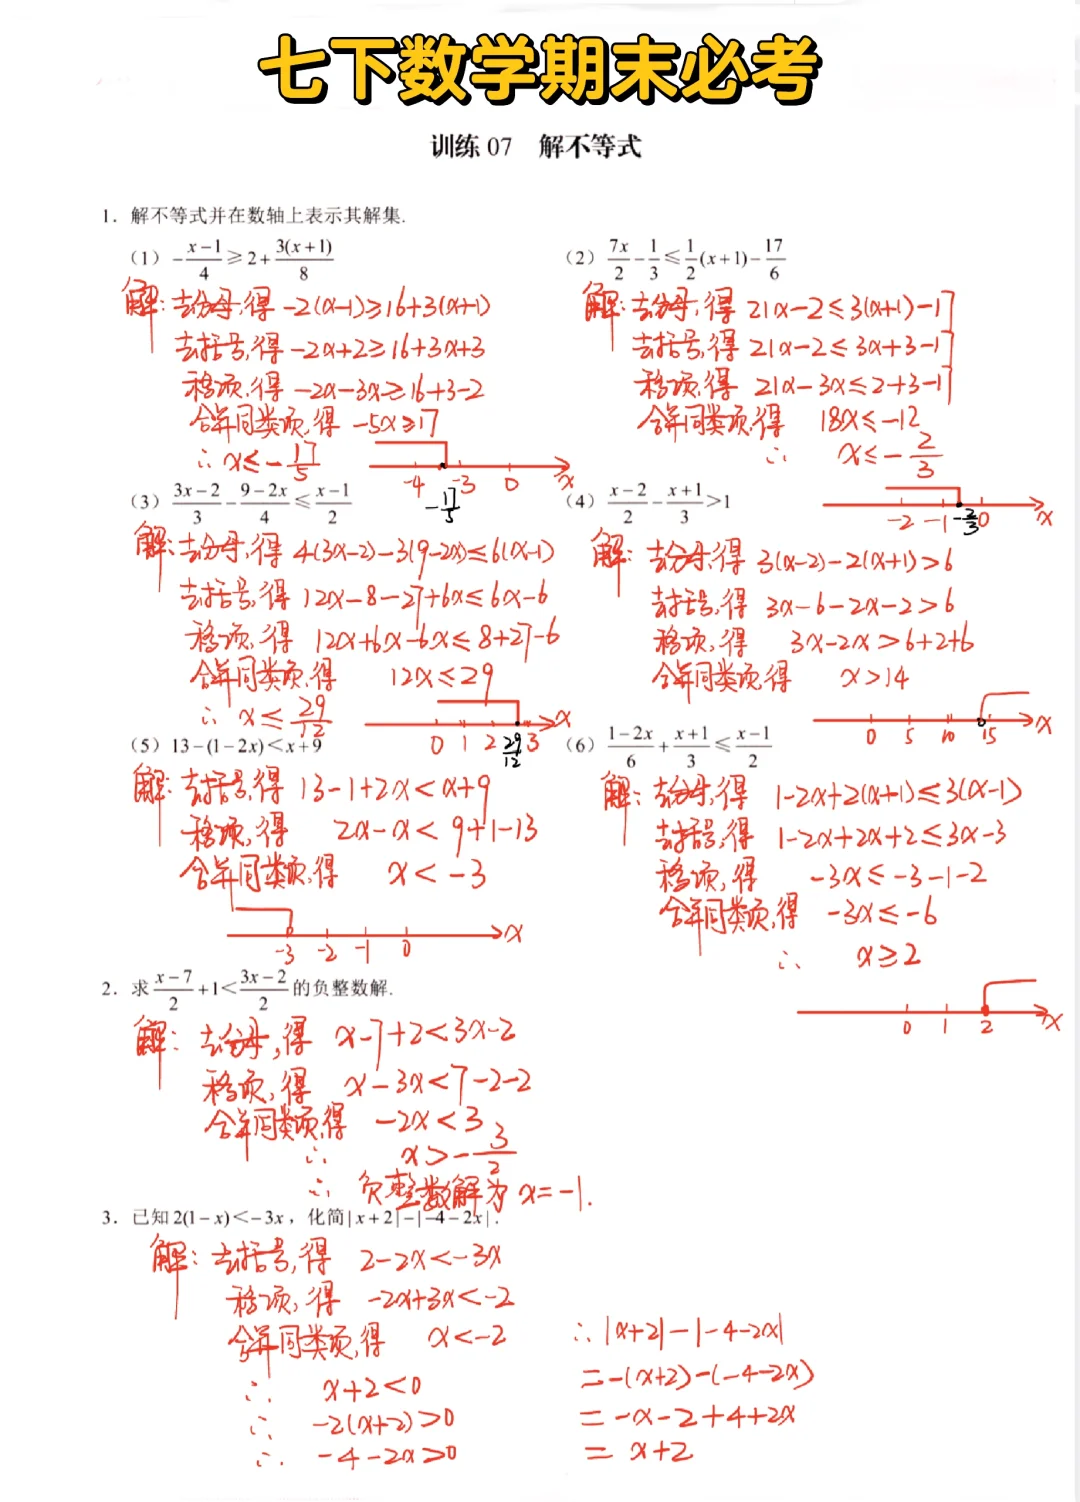 七下数学期末必考
训练 07 解不等式
1. 解不等式并在数轴上表示其解集.
(1) -(x-1)/4 ≥ 2+3(x+1)/8
解: 去分母,得 -2(x-1)≥16+3(x+1)
去括号,得 -2x+2≥16+3x+3
移项,得 -2x-3x≥16+3-2
合并同类项,得 -5x≥17
∴ x≤-17/5
-4 -3 0 x
-17/5
(2) 7x/2-1/3≤1/2(x+1)-17/6
解: 去分母,得 21x-2≤3(x+1)-17
去括号,得 21x-2≤3x+3-17
移项,得 21x-3x≤2+3-17
合并同类项,得 18x≤-12
∴ x≤-2/3
-2 -1 -2/3 0 x
(3) (3x-2)/3-(9-2x)/4≤(x-1)/2
解: 去分母,得 4(3x-2)-3(9-2x)≤6(x-1)
去括号,得 12x-8-27+6x≤6x-6
移项,得 12x+6x-6x≤8+27-6
合并同类项,得 12x≤29
∴ x≤29/12
0 1 2 29/12 3 x
(4) (x-2)/2-(x+1)/3>1
解: 去分母,得 3(x-2)-2(x+1)>6
去括号,得 3x-6-2x-2>6
移项,得 3x-2x>6+2+6
合并同类项,得 x>14
0 5 10 15 x
(5) 13-(1-2x)<x+9
解: 去括号,得 13-1+2x<x+9
移项,得 2x-x<9+1-13
合并同类项,得 x<-3
-3 -2 -1 0 x
(6) (1-2x)/6+(x+1)/3≤(x-1)/2
解: 去分母,得 1-2x+2(x+1)≤3(x-1)
去括号,得 1-2x+2x+2≤3x-3
移项,得 -3x≤-3-1-2
合并同类项,得 -3x≤-6
∴ x≥2
0 1 2 x
2. 求(x-7)/2+1<(3x-2)/2的负整数解.
解: 去分母,得 x-7+2<3x-2
移项,得 x-3x<7-2-2
合并同类项,得 -2x<3
∴ x>-3/2
∴ 负整数解为 x=-1.
3. 已知2(1-x)<-3x, 化简|x+2|-|-4-2x|.
解: 去括号,得 2-2x<-3x
移项,得 -2x+3x<-2
合并同类项,得 x<-2
∴ x+2<0
∴ -2(x+2)>0
∴ -4-2x>0
∴ |x+2|-|-4-2x|
=-(x+2)-(-4-2x)
=-x-2+4+2x
= x+2